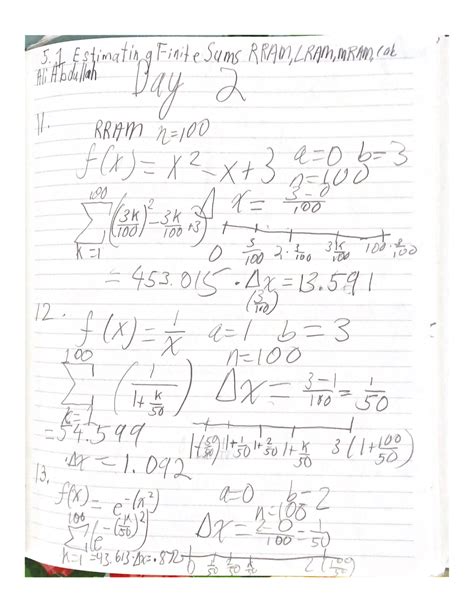 5.1 Estimating Finite Sums RRAM, LRAM, MRAM, Calc
Ali Abdullah
Day 2
11.
RRAM n=100
f(x) = x² - x + 3 a=0 b=3
n=100
100
∑ ((3k/100)² - 3k/100 + 3) Δx = 3-0/100
k=1
0 3/100 2·3/100 3k/100 100·3/100
= 453.015 · Δx = 13.591
(3/100)
12.
f(x) = 1/x a=1 b=3
n=100
100
∑ (1/(1+k/50)) Δx = 3-1/100 = 1/50
k=1
= 54.599
1+1/50 1+2/50 1+k/50 3(1+100/50)
·Δx = 1.092
13.
f(x) = e^-(x²) a=0 b=2
n=100
100
∑ (e^-(k/50)²) Δx = 2-0/100 = 1/50
k=1 = 43.613·Δx = .872
0 1/50 2/50 k/50 2(100/50)